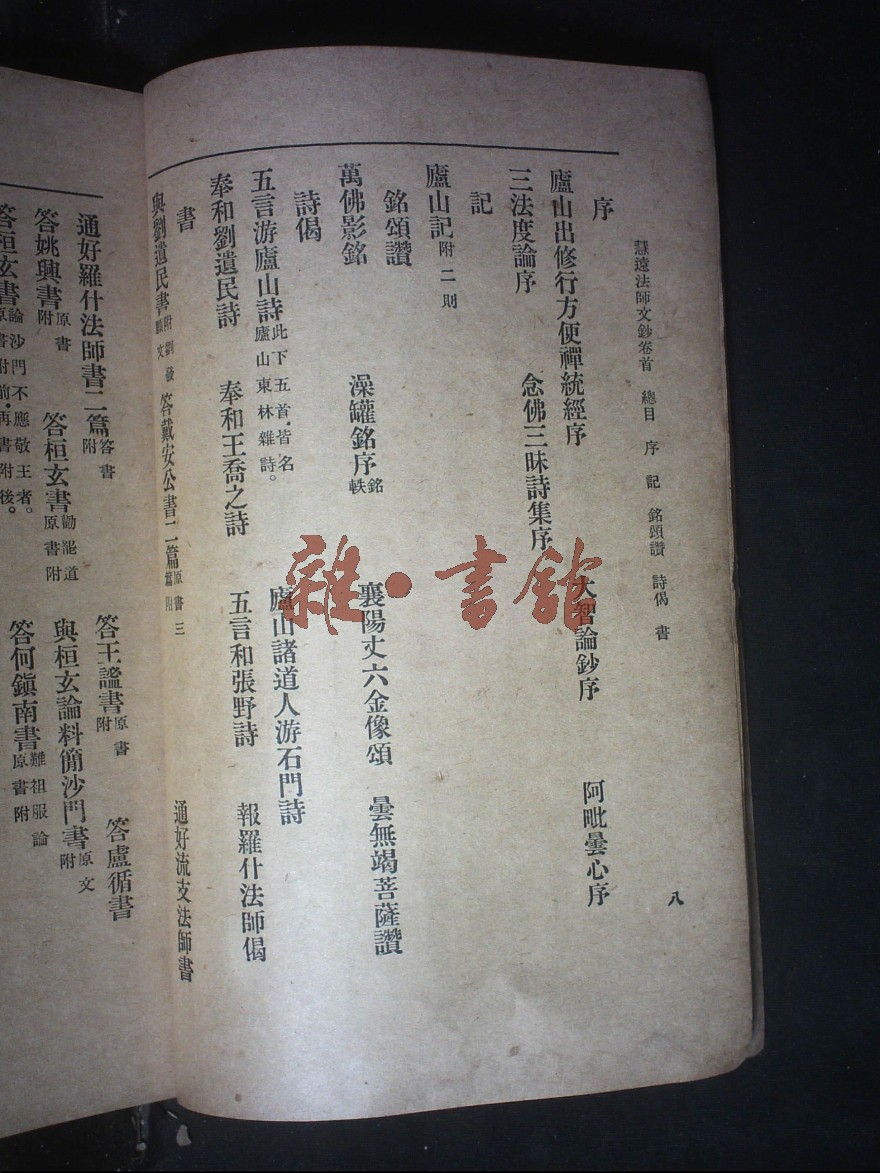 慧遠法師文鈔卷首　總目　序　記　銘頌讚　詩偈　書
八
序
廬山出修行方便禪統經序　大智論鈔序　阿毗曇心序
三法度論序　念佛三昧詩集序
記
廬山記附二則
銘頌讚
萬佛影銘　澡罐銘序銘軼　襄陽丈六金像頌　曇無竭菩薩讚
詩偈
五言游廬山詩此下五首，皆名廬山東林雜詩。　廬山諸道人游石門詩
奉和劉遺民詩　奉和王喬之詩　五言和張野詩　報羅什法師偈
書
與劉遺民書附劉發願文　答戴安公書二篇原書三篇附　通好流支法師書
通好羅什法師書二篇答書附　答王謐書原書附　答盧循書
答姚興書原書附　答桓玄書勸罷道原書附　與桓玄論料簡沙門書原文附
答桓玄書論沙門不應敬王者。原書附前，再書附後。　答何鎮南書難袒服論原書附
雜·書館